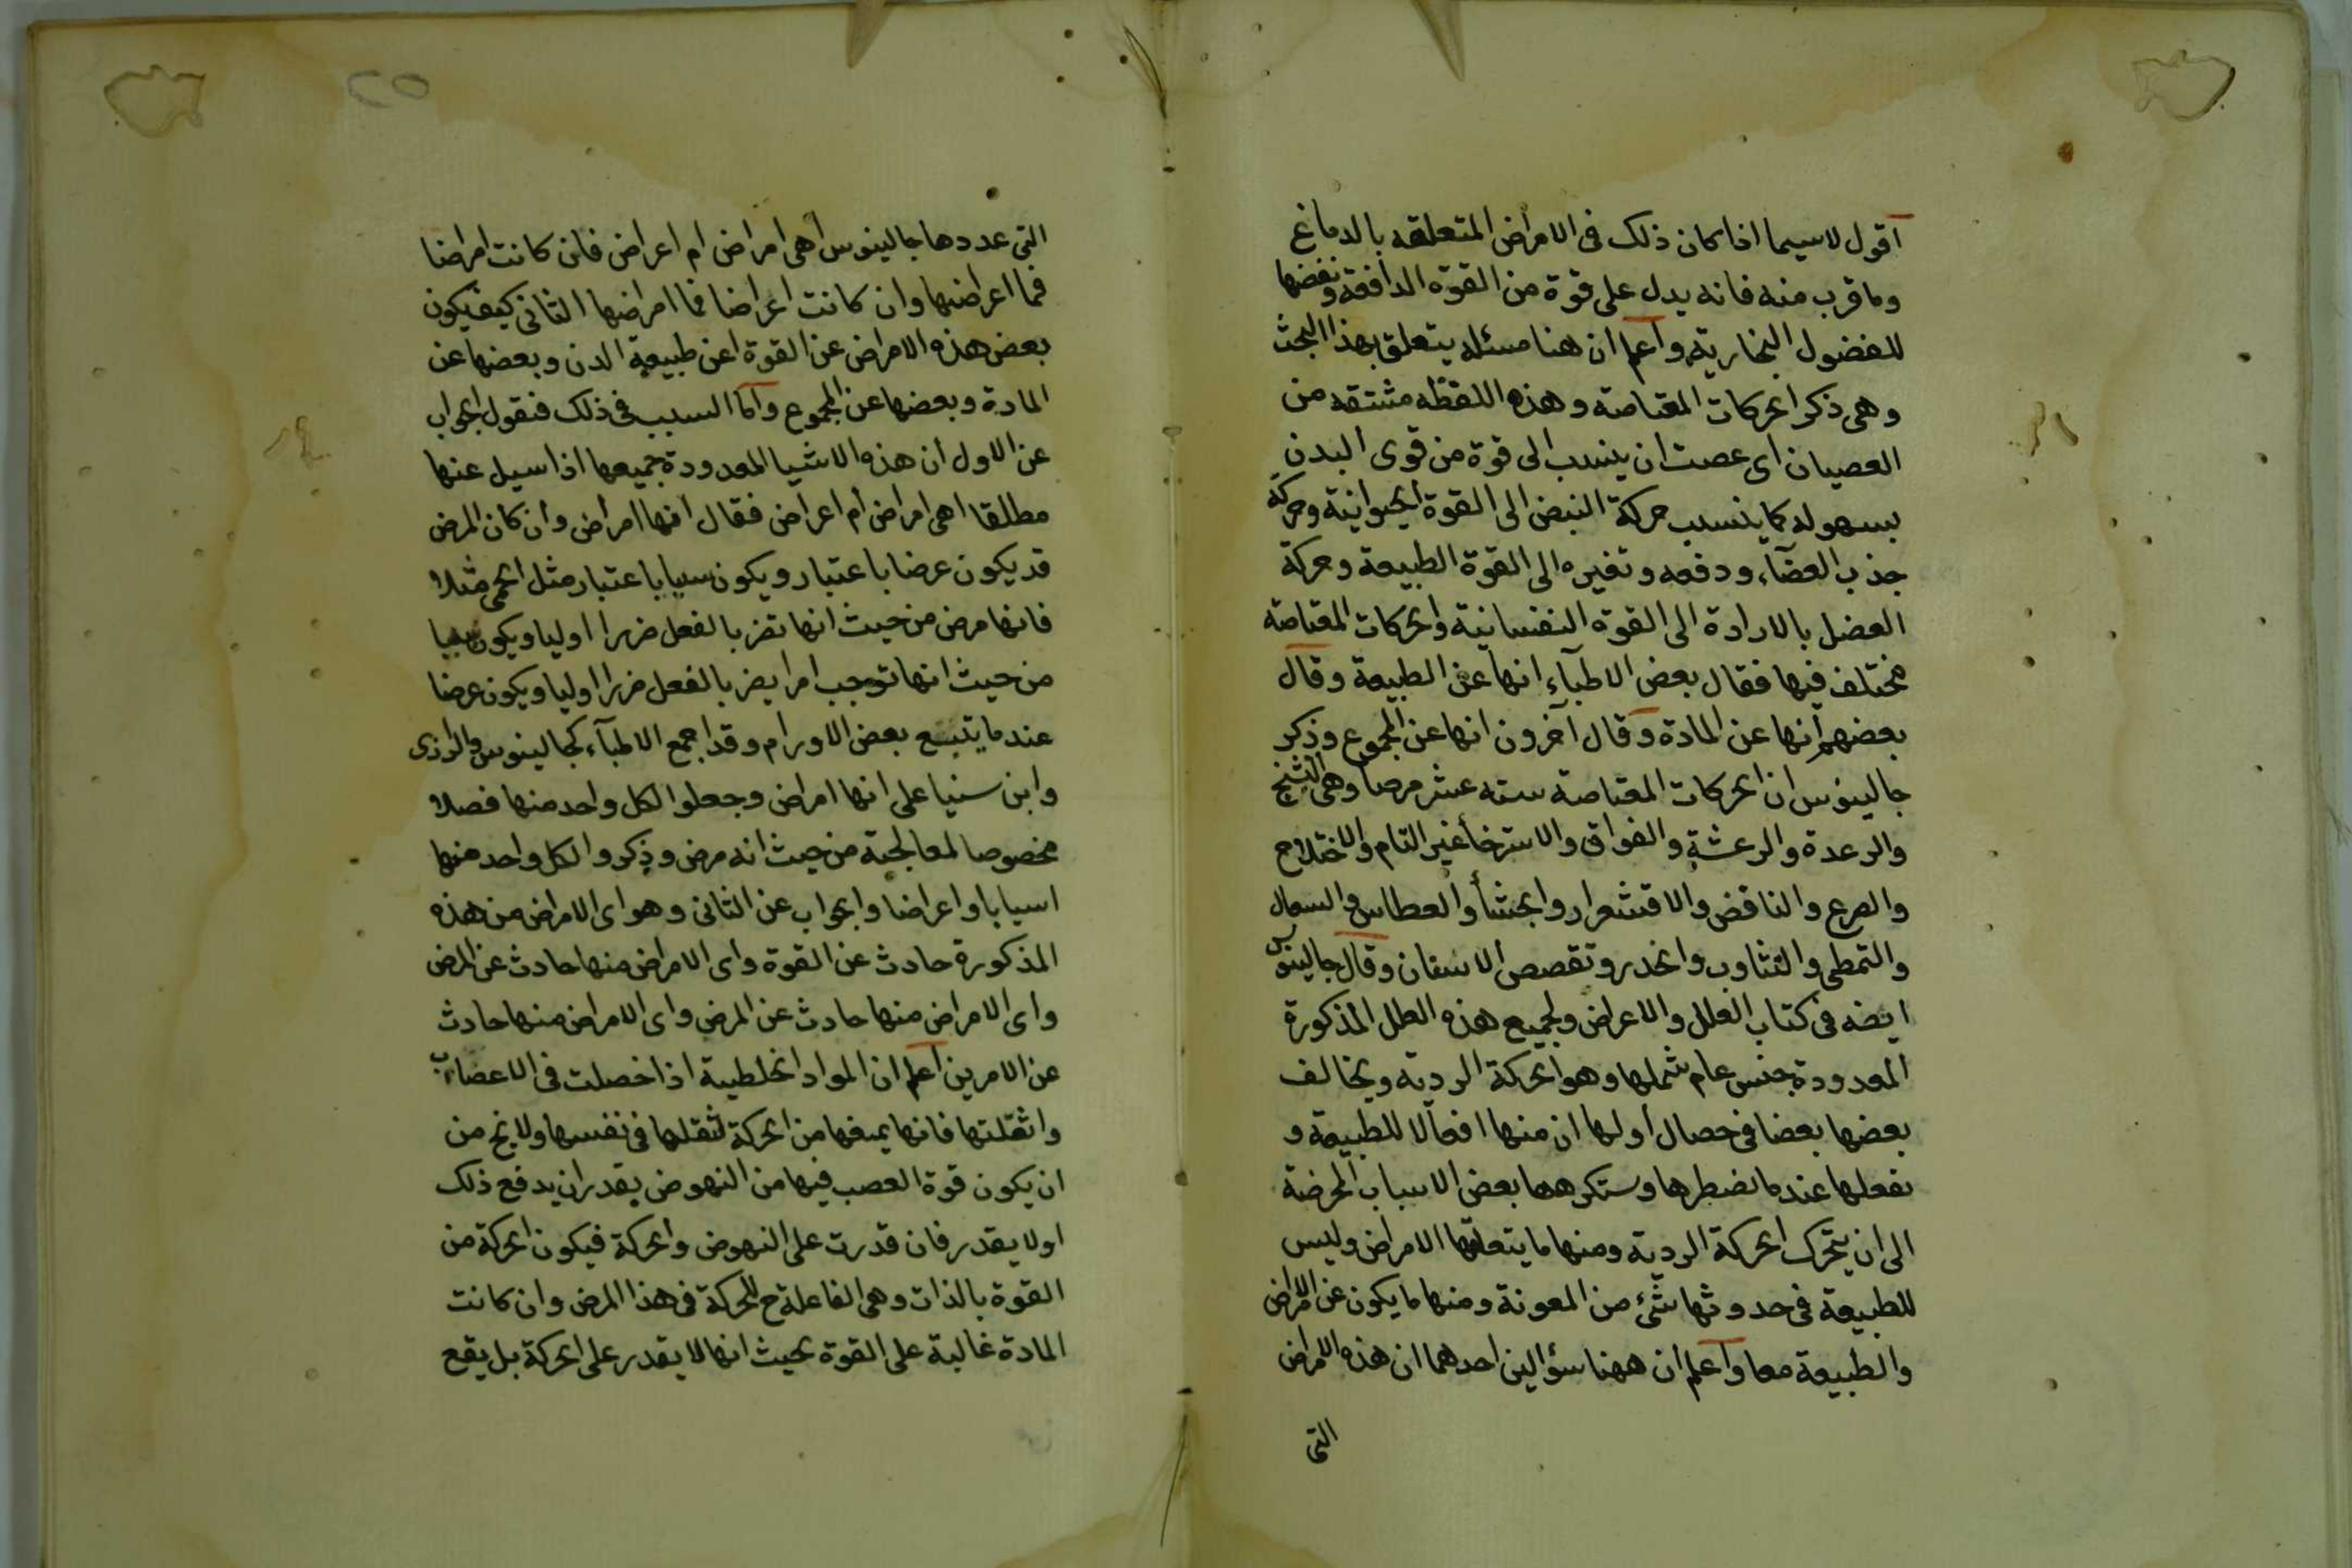 اقول لاسيما اذا كان ذلك فى الامراض المتعلقه بالدماغ
وما قرب منه فانه يدل على قوة من القوة الدافعة ونفضها
للفضول البخارية واعلم ان هنا مسئله يتعلق بهذا البحث
وهى ذكر الحركات المقتاصة وهذه اللفظه مشتقه من
العصيان اى عصت ان ينسب الى قوة من قوى البدن
بسهوله كما ينسب حركة النبض الى القوة الحيوانية وحركة
جذب الغضآء ودفعه وتغيره الى القوة الطبيعة وحركة
العضل بالارادة الى القوة النفسانية والحركات المقتاصة
مختلف فيها فقال بعض الاطبآء انها عن الطبيعة وقال
بعضهم انها عن المادة وقال آخرون انها عن المجموع وذكر
جالينوس ان الحركات المقتاصة سته عشر مرضا وهى التشنج
والرعدة والرعشة والفواق والاسترخأ غير التام والاختلاج
والصرع والنافض والاقشعرار والجشأ والعطاس والسعال
والتمطى والتثاوب والخدر وتقصص الاسنان وقال جالينوس
ايضه فى كتاب العلل والاعراض ولجميع هذه العلل المذكورة
المعدودة جنس عام شملها وهو الحركة الردية ويخالف
بعضها بعضا فى خصال اولها ان منها افعالا للطبيعة و
نفعلها عندما نضطرها وستكرهها بعض الاسباب الممرضة
الى ان يتحرك الحركة الردية ومنها ما يتعلقها الامراض وليس
للطبيعة فى حدوثها شئ من المعونة ومنها ما يكون عن الامراض
والطبيعة معا واعلم ان ههنا سؤالين احدهما ان هذه الامراض
التى
التى عددها جالينوس أهى امراض ام اعراض فان كانت امراضا
فما اعراضها وان كانت اعراضا فما امراضها الثانى كيف يكون
بعض هذه الامراض عن القوة اعن طبيعة الدن وبعضها عن
المادة وبعضها عن المجموع واما السبب فى ذلك فنقول الجواب
عن الاول ان هذه الاشيا المعدودة جميعها اذا سيل عنها
مطلقا اهى امراض أم اعراض فقال انها امراض وان كان المرض
قد يكون عرضا باعتبار ويكون سببا باعتبار مثل الحمى مثلا
فانها مرض من حيث انها تضر بالفعل ضررا اوليا ويكون سببا
من حيث انها توجب امرا يضر بالفعل ضررا اوليا ويكون عرضا
عندما يتبع بعض الاورام وقد اجمع الاطبآء كجالينوس والرازى
وابن سنيا على انها امراض وجعلوا لكل واحد منها فصلا
مخصوصا لمعالجته من حيث انه مرض وذكروا لكل واحد منها
اسبابا واعراضا والجواب عن الثانى وهو اى الامراض من هذه
المذكورة حادث عن القوة واى الامراض منها حادث عن المرض
واى الامراض منها حادث عن المرض واى الامراض منها حادث
عن الامرين اعلم ان المواد الخلطية اذا حصلت فى الاعضاء
واثقلتها فانها يمنعها من الحركة لثقلها فى نفسها ولا يخ من
ان يكون قوة العصب فيها من النهوض يقدر ان يدفع ذلك
اولا يقدر فان قدرت على النهوض والحركة فيكون الحركة من
القوة بالذات وهى الفاعلة ح للحركة فى هذا المرض وان كانت
المادة غالبة على القوة بحيث انها لا يقدر على الحركة بل يقع